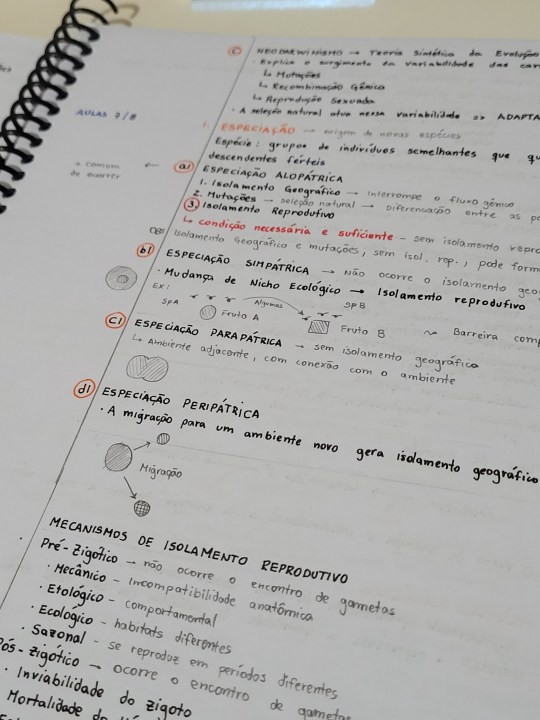 c) NEODARWINISMO → Teoria Sintética da Evolução
· Explica o surgimento da variabilidade das
↳ Mutações
↳ Recombinação Gênica
↳ Reprodução Sexuada
· A seleção natural atua nessa variabilidade => ADAPTA
AULAS 7/8
ESPECIAÇÃO → origem de novas espécies
Espécie: grupos de indivíduos semelhantes que
descendentes férteis
+ comum de ocorrer ← a) ESPECIAÇÃO ALOPÁTRICA
1. Isolamento Geográfico → interrompe o fluxo gênico
2. Mutações → seleção natural → diferenciação entre as
3. Isolamento Reprodutivo
↳ condição necessária e suficiente - sem isolamento
OBS: Isolamento Geográfico e mutações, sem isol. rep., pode
b) ESPECIAÇÃO SIMPÁTRICA → não ocorre o isolamento
· Mudança de Nicho Ecológico → Isolamento reprodutivo
Ex:
SpA Algumas SpB
Fruto A Fruto B ~ Barreira
c) ESPECIAÇÃO PARAPÁTRICA → sem isolamento geográfico
↳ Ambiente adjacente, com conexão com o ambiente
d) ESPECIAÇÃO PERIPÁTRICA
· A migração para um ambiente novo gera isolamento geográfico
Migração
MECANISMOS DE ISOLAMENTO REPRODUTIVO
Pré-Zigótico → não ocorre o encontro de gametas
· Mecânico - Incompatibilidade anatômica
· Etológico - comportamental
· Ecológico - habitats diferentes
· Sazonal - se reproduz em períodos diferentes
Pós-Zigótico → ocorre o encontro de gametas
· Inviabilidade do zigoto
· Mortalidade do